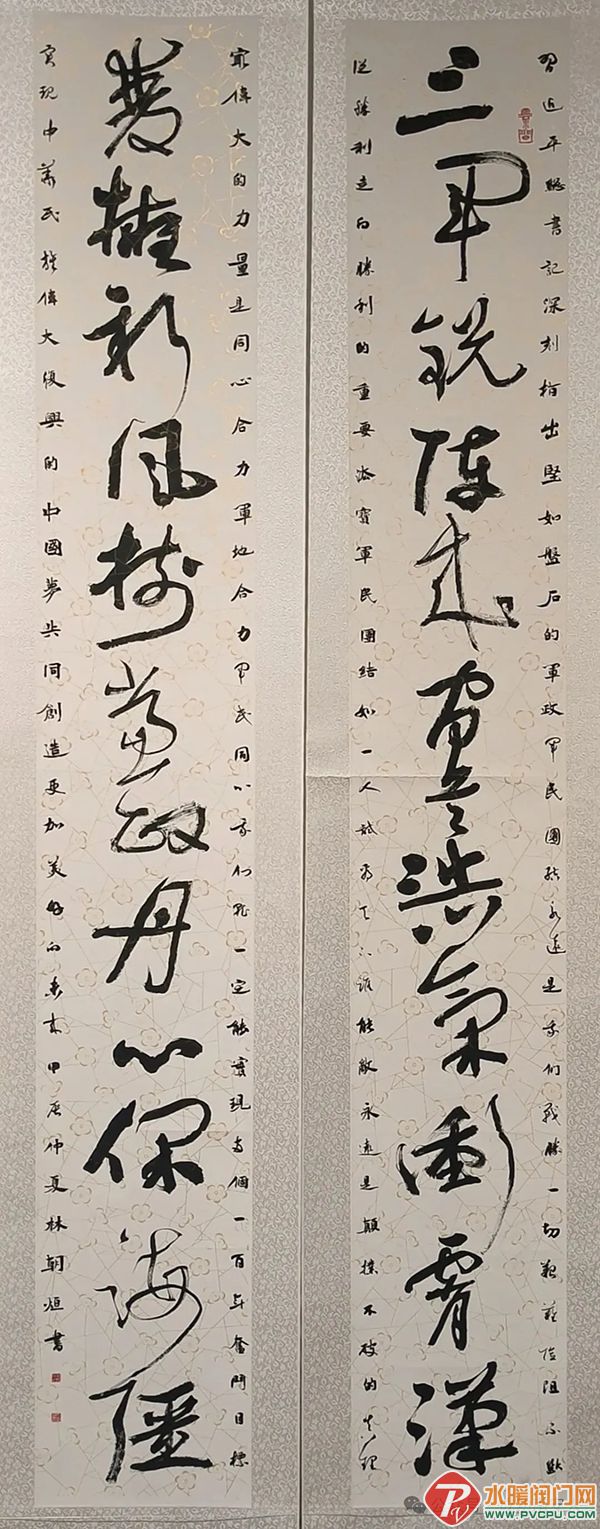 習近平總書記深刻指出堅如盤石的軍政軍民團結永遠是我們戰勝一切艱難險阻不斷
三軍銳陣浩氣衝霄漢
從勝利走向勝利的重要法寶軍民團結如一人試看天下誰能敵永遠是顛撲不破的真理
最偉大的力量是同心合力軍地合力軍民同心我們就一定能實現兩個一百年奮鬥目標
雙擁新風樹黨政丹心保海疆
實現中華民族偉大復興的中國夢共同創造更加美好的未來甲辰仲夏林朝恒書
水暖阀门网
WWW.PVCPU.COM